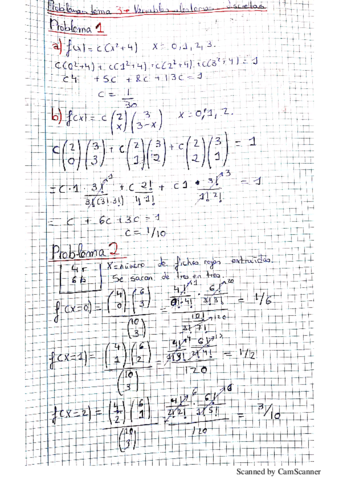 Problemas tema 3 - Variables aleatorias discretas
Problema 1
a) f(x) = c(x²+4) x = 0,1,2,3.
c(0²+4) + c(1²+4) + c(2²+4) + c(3²+4) = 1
c4 + 5c + 8c + 13c = 1.
c = 1/30
b) f(x) = c (2 x) (3 3-x) x = 0,1,2.
c (2 0) (3 3) + c (2 1) (3 2) + c (2 2) (3 1) = 1
= c·1· = 1
= c + 6c + 3c = 1
c = 1/10
Problema 2
4 r
6 b
X = número de fichas rojas extraídas.
Se sacan de tres en tres.
f(x=0) = (4 0) (6 3) / (10 3) = 1/6
f(x=1) = (4 1) (6 2) / (10 3) 120 = 1/2
f(x=2) = (4 2) (6 1) / (10 3) 120 = 3/10
Scanned by CamScanner